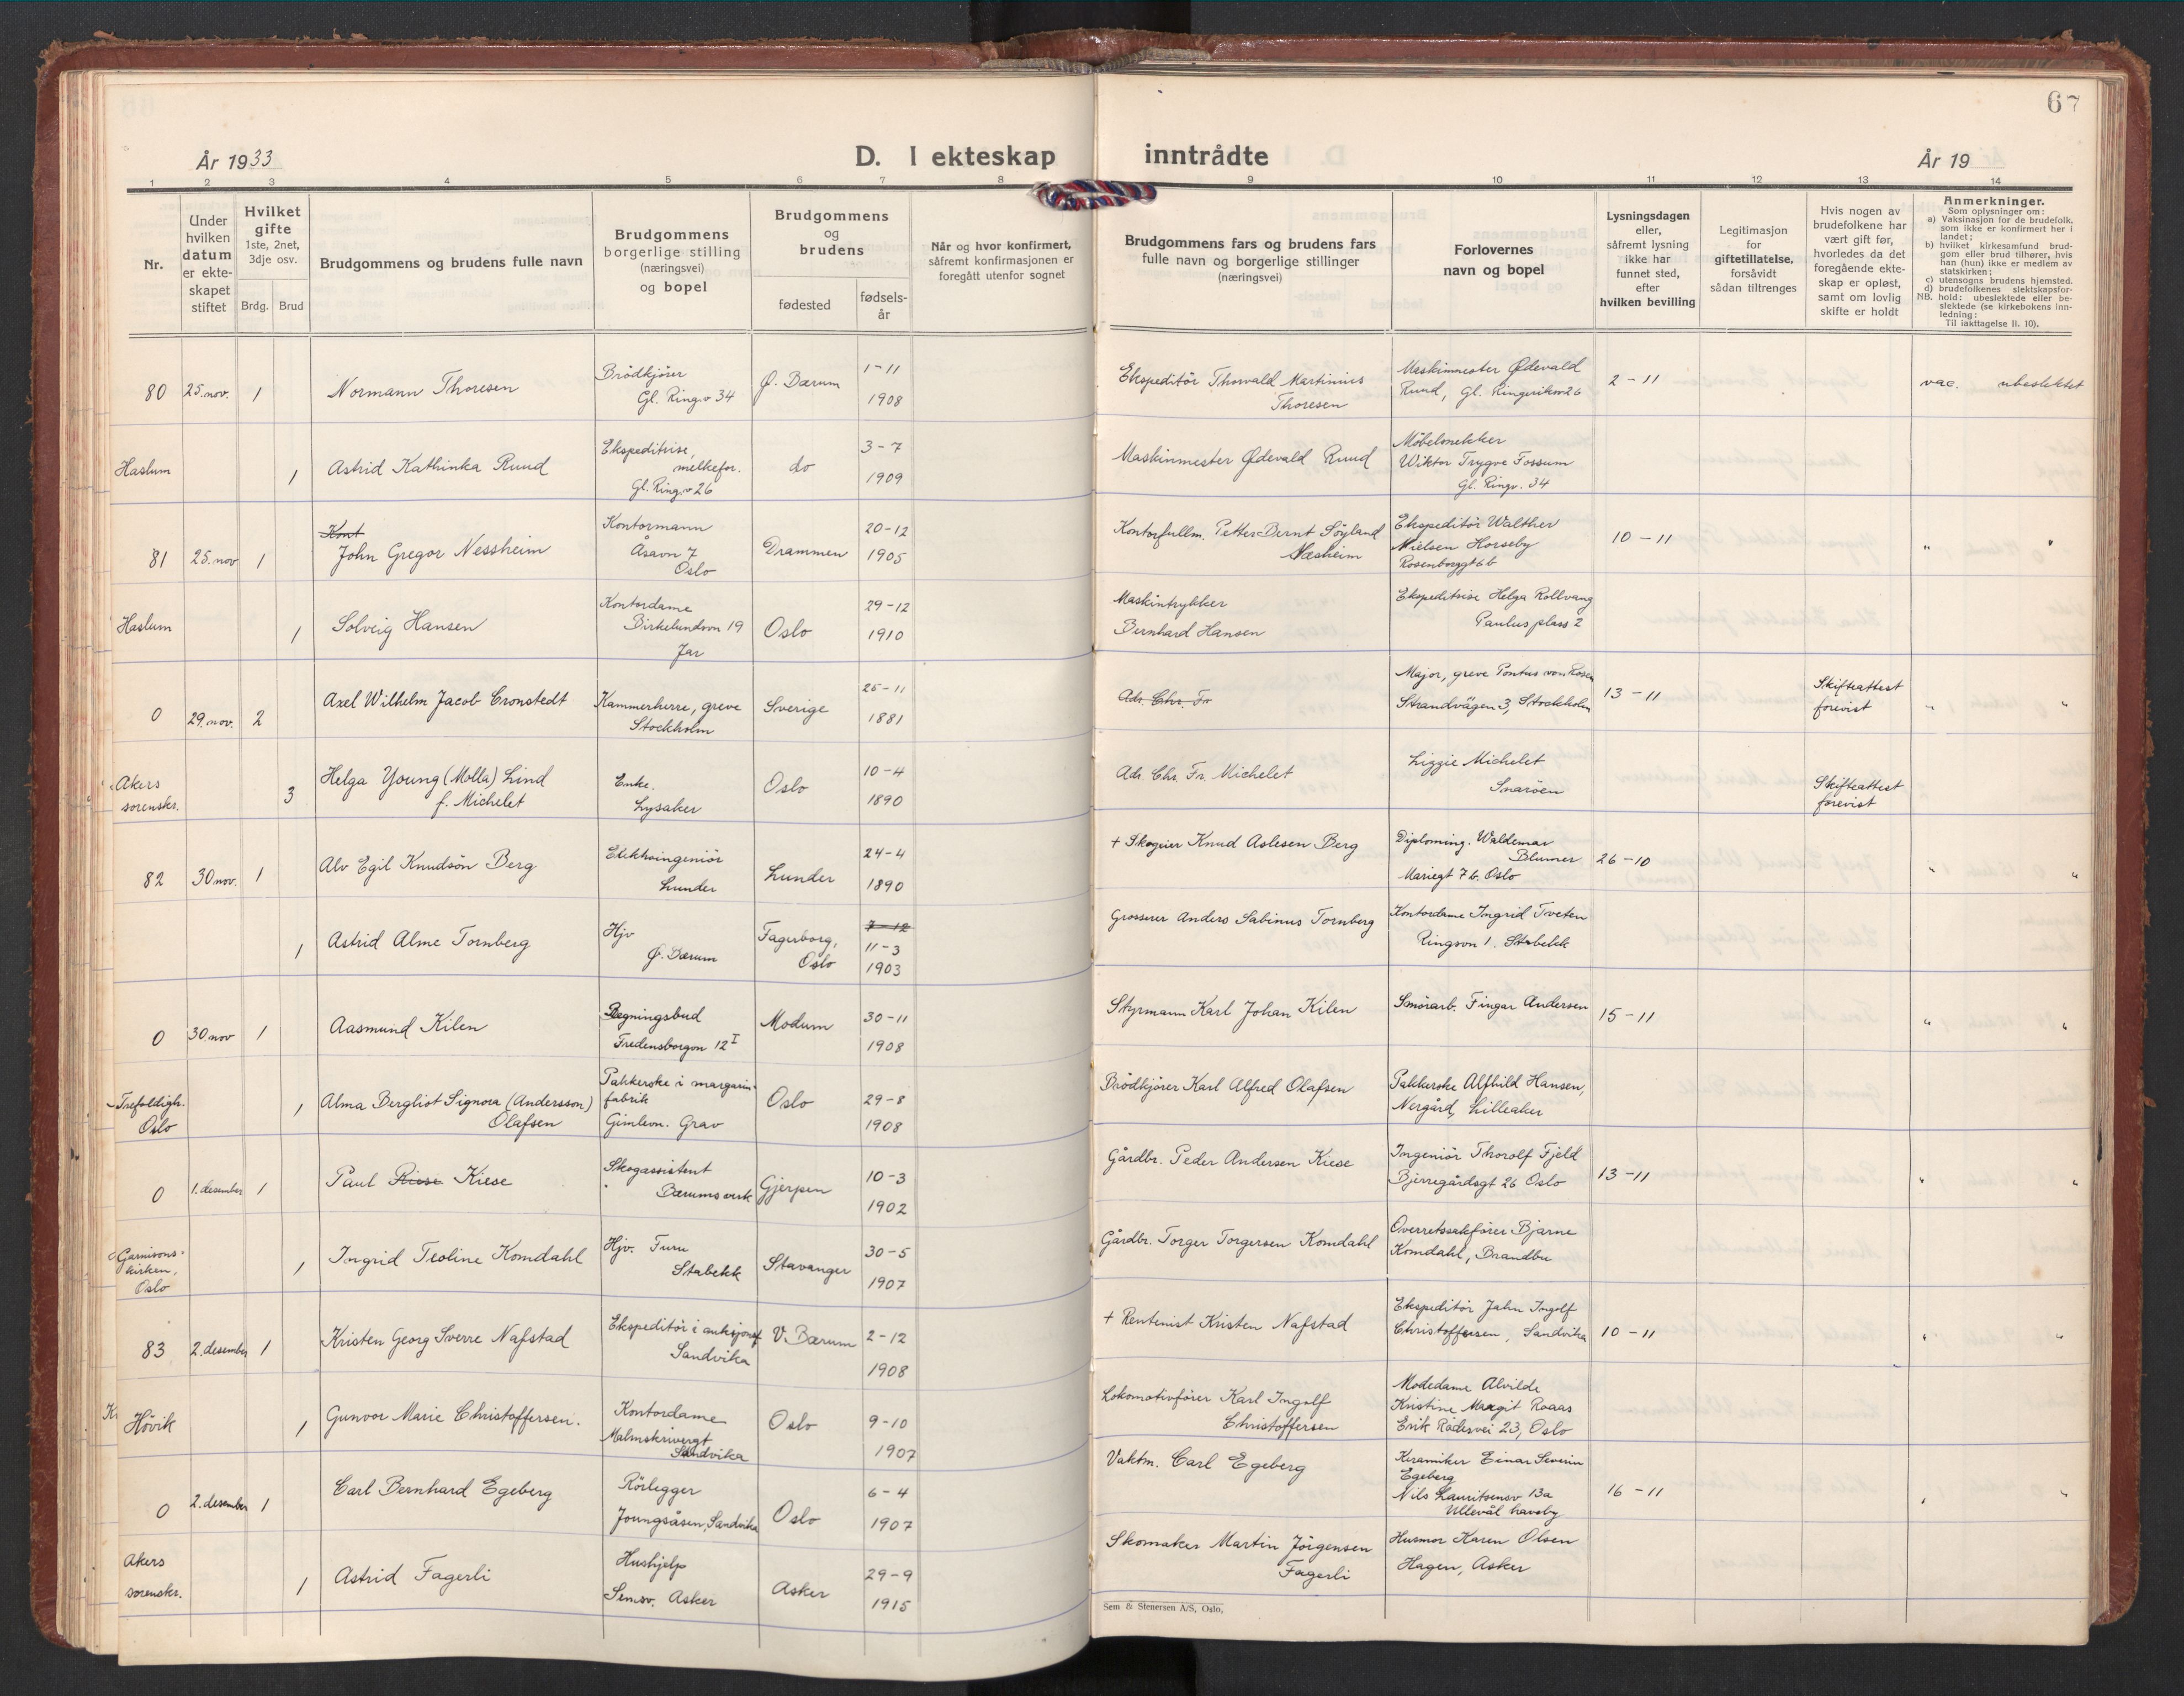 67
År 1933
D. I ekteskap inntrådte
År 19
1 2 3 4 5 6 7 8 9 10 11 12 13 14
Nr.
Under hvilken datum er ekte- skapet stiftet
Hvilket gifte 1ste, 2net, 3dje osv.
Brdg. Brud
Brudgommens og brudens fulle navn
Brudgommens borgerlige stilling (næringsvei) og bopel
Brudgommens og brudens
fødested
fødsels- år
Når og hvor konfirmert, såfremt konfirmasjonen er foregått utenfor sognet
Brudgommens fars og brudens fars fulle navn og borgerlige stillinger (næringsvei)
Forlovernes navn og bopel
Lysningsdagen eller, såfremt lysning ikke har funnet sted, efter hvilken bevilling
Legitimasjon for giftetillatelse, forsåvidt sådan tiltrenges
Hvis nogen av brudefolkene har vært gift før, hvorledes da det foregående ekte- skap er opløst, samt om lovlig skifte er holdt
Anmerkninger.
Som oplysninger om:
a) Vaksinasjon for de brudefolk, som ikke er konfirmert her i landet;
b) hvilket kirkesamfund brud- gom eller brud tilhører, hvis han (hun) ikke er medlem av statskirken;
c) utensogns brudens hjemsted.
d) brudefolkenes slektskapsfor- hold: ubeslektede eller be- slektede (se kirkebokens inn- ledning:
NB. Til iakttagelse II. 10).
80 25. nov. 1 Normann Thoresen Brödkjörer Gl. Ring.v 34 Ø. Bærum 1-11 1908 Ekspeditör Thorvald Martinius Thoresen Maskinmester Ødevald Ruud, Gl. Ringeriksv 26 2-11 vac. ubeslektet
Haslum 1 Astrid Kathinka Ruud Ekspeditrise, melkefor. Gl. Ring.v 26 do 3-7 1909 Maskinmester Ødevald Ruud Möbelsnekker Wiktor Trygve Fossum Gl. Ringv. 34
81 25. nov 1 Kont John Gregor Nessheim Kontormann Åsavn 7 Oslo Drammen 20-12 1905 Kontorfullm. Petter Bernt Söyland Næsheim Ekspeditör Walther Nielsen Horseby Rosenborggt 6b 10-11 " "
Haslum 1 Solveig Hansen Kontordame Birkelundvn 19 Jar Oslo 29-12 1910 Maskintrykker Bernhard Hansen Ekspeditrise Helga Rollvang Paulus plass 2
0 29. nov. 2 Axel Wilhelm Jacob Cronstedt Kammerherre, greve Stockholm Sverige 25-11 1881 Adr. Chr. Fr Major, greve Pontus von Rosen Strandvägen 3, Stockholm 13-11 Skifteattest forevist " "
Akers sorenskr. 3 Helga Young (Molla) Lind f. Michelet Enke. Lysaker Oslo 10-4 1890 Adr. Chr. Fr. Michelet Liggie Michelet Snaröen Skifteattest forevist
82 30 nov. 1 Alv Egil Knudsön Berg Elektroingeniör Lunder Lunder 24-4 1890 + Skogeier Knud Aslesen Berg Diploming. Waldemar Blumer Mariegt 7 b. Oslo 26-10 " "
1 Astrid Alme Tornberg Hjv Ø. Bærum Fagerborg, Oslo 7-12 11-3 1903 Grosserer Anders Sabinus Tornberg Kontordame Ingrid Tveten Ringsvn 1. Stabekk
0 30. nov 1 Aasmund Kilen Regningsbud Fredensborgvn 12 I Modum 30-11 1908 Styrmann Karl Johan Kilen Smörarb. Fingar Andersen 15-11 " "
Trefoldigh. Oslo 1 Alma Bergliot Signora (Andersson) Olafsen Pakkerske i margarin- fabrik Gimlevn. Grav Oslo 29-8 1908 Brödkjörer Karl Alfred Olafsen Pakkerske Alfhild Hansen, Nergård, Lilleaker
0 1. desember 1 Paul Riese Kiese Skogassistent Bærums verk Gjerpen 10-3 1902 Gårdbr. Peder Andersen Kiese Ingeniör Thorolf Fjeld Bjerregårdsgt 26 Oslo 13-11 " "
Garnisons- kirken, Oslo 1 Ingrid Teoline Komdahl Hjv. Furu Stabekk Stavanger 30-5 1907 Gårdbr. Torger Torgersen Komdahl Overretssakförer Bjarne Komdahl, Brandbu
83 2. desember 1 Kristen Georg Sverre Nafstad Ekspeditör i auksjonsf Sandvika V. Bærum 2-12 1908 + Rentenist Kristen Nafstad Ekspeditör Jahn Ingolf Christoffersen, Sandvika 10-11 " "
Hövik 1 Gunvor Marie Christoffersen. Kontordame Malmskrivergt Sandvika Oslo 9-10 1907 Lokomotivförer Karl Ingolf Christoffersen Modedame Alvilde Kristine Margit Roaas Erik Rådesvei 23, Oslo
0 2. desember 1 Carl Bernhard Egeberg Rörlegger Joungsåsen, Sandvika Oslo 6-4 1907 Vaktm. Carl Egeberg Keramiker Einar Severin Egeberg Nils Lauritsensv 13a Ullevål haveby 16-11 " "
Akers sorenskr. 1 Astrid Fagerli Hushjelp Semsv. Asker Asker 29-9 1915 Skomaker Martin Jörgensen Fagerli Husmor Karen Olsen Hagen, Asker
Sem & Stenersen A/S, Oslo.